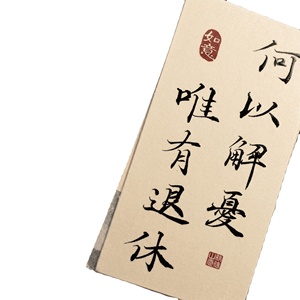 何以解憂
唯有退休
如意